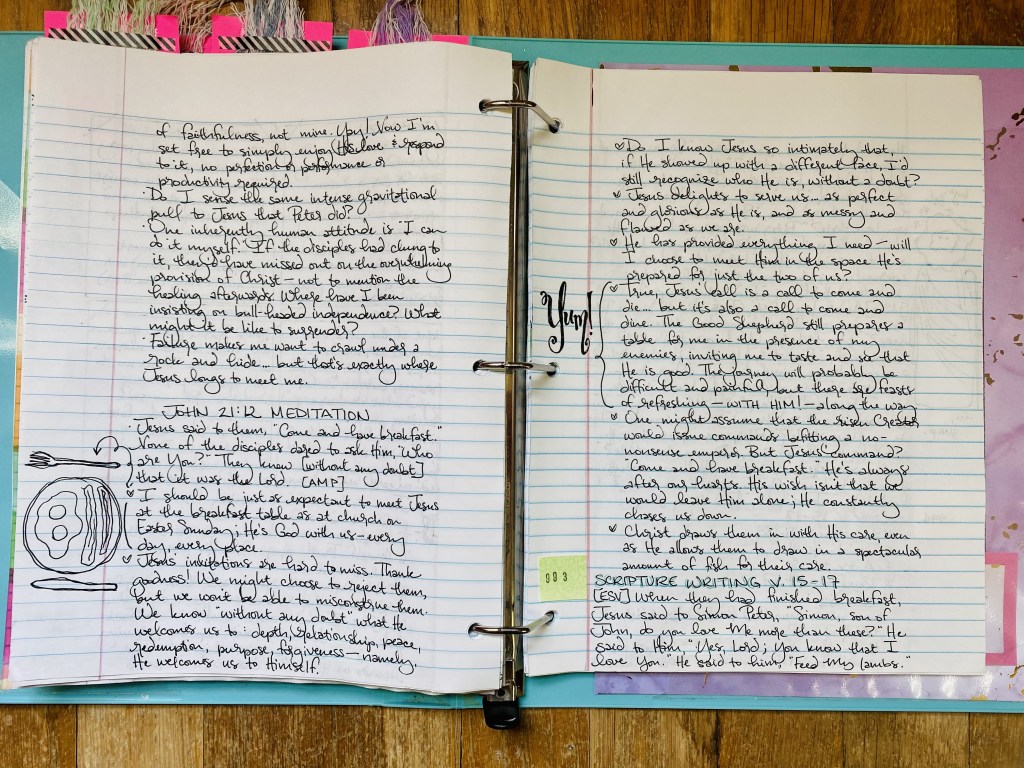 of faithfulness, not mine. Yay! Now I'm
set free to simply enjoy His love & respond
to it, no perfection or performance or
productivity required.
· Do I sense the same intense gravitational
pull to Jesus that Peter did?
· One inherently human attitude is "I can
do it myself." If the disciples had clung to
it, they'd have missed out on the overwhelming
provision of Christ - not to mention the
healing afterwards. Where have I been
insisting on bull-headed independence? What
might it be like to surrender?
· Failure makes me want to crawl under a
rock and hide... but that's exactly where
Jesus longs to meet me.
JOHN 21:12 MEDITATION
· Jesus said to them, "Come and have breakfast."
None of the disciples dared to ask Him, "Who
are You?" They knew [without any doubt]
that it was the Lord. [AMP]
♡ I should be just as expectant to meet Jesus
at the breakfast table as at church on
Easter Sunday; He's God with us - every
day, every place.
♡ Jesus' invitations are hard to miss. Thank
goodness! We might choose to reject them,
but we won't be able to misconstrue them.
We know "without any doubt" what He
welcomes us to: depth, relationship, peace,
redemption, purpose, forgiveness - namely,
He welcomes us to Himself.
♡ Do I know Jesus so intimately that,
if He showed up with a different face, I'd
still recognize who He is, without a doubt?
♡ Jesus delights to serve us... as perfect
and glorious as He is, and as messy and
flawed as we are.
♡ He has provided everything I need - will
I choose to meet Him in the space He's
prepared for just the two of us?
Yum!
♡ True, Jesus' call is a call to come and
die... but it's also a call to come and
dine. The Good Shepherd still prepares a
table for me in the presence of my
enemies, inviting me to taste and see that
He is good. The journey will probably be
difficult and painful, but there are feasts
of refreshing - WITH HIM! - along the way.
♡ One might assume that the risen Creator
would issue commands befitting a no-
nonsense emperor. But Jesus' command?
"Come and have breakfast." He's always
after our hearts. His wish isn't that we
would leave Him alone; He constantly
chases us down.
♡ Christ draws them in with His care, even
as He allows them to draw in a spectacular
amount of fish for their care.
SCRIPTURE WRITING V. 15-17
[ESV] When they had finished breakfast,
Jesus said to Simon Peter, "Simon, son of
John, do you love Me more than these?" He
said to Him, "Yes, Lord; You know that I
love You." He said to him, "Feed My lambs."